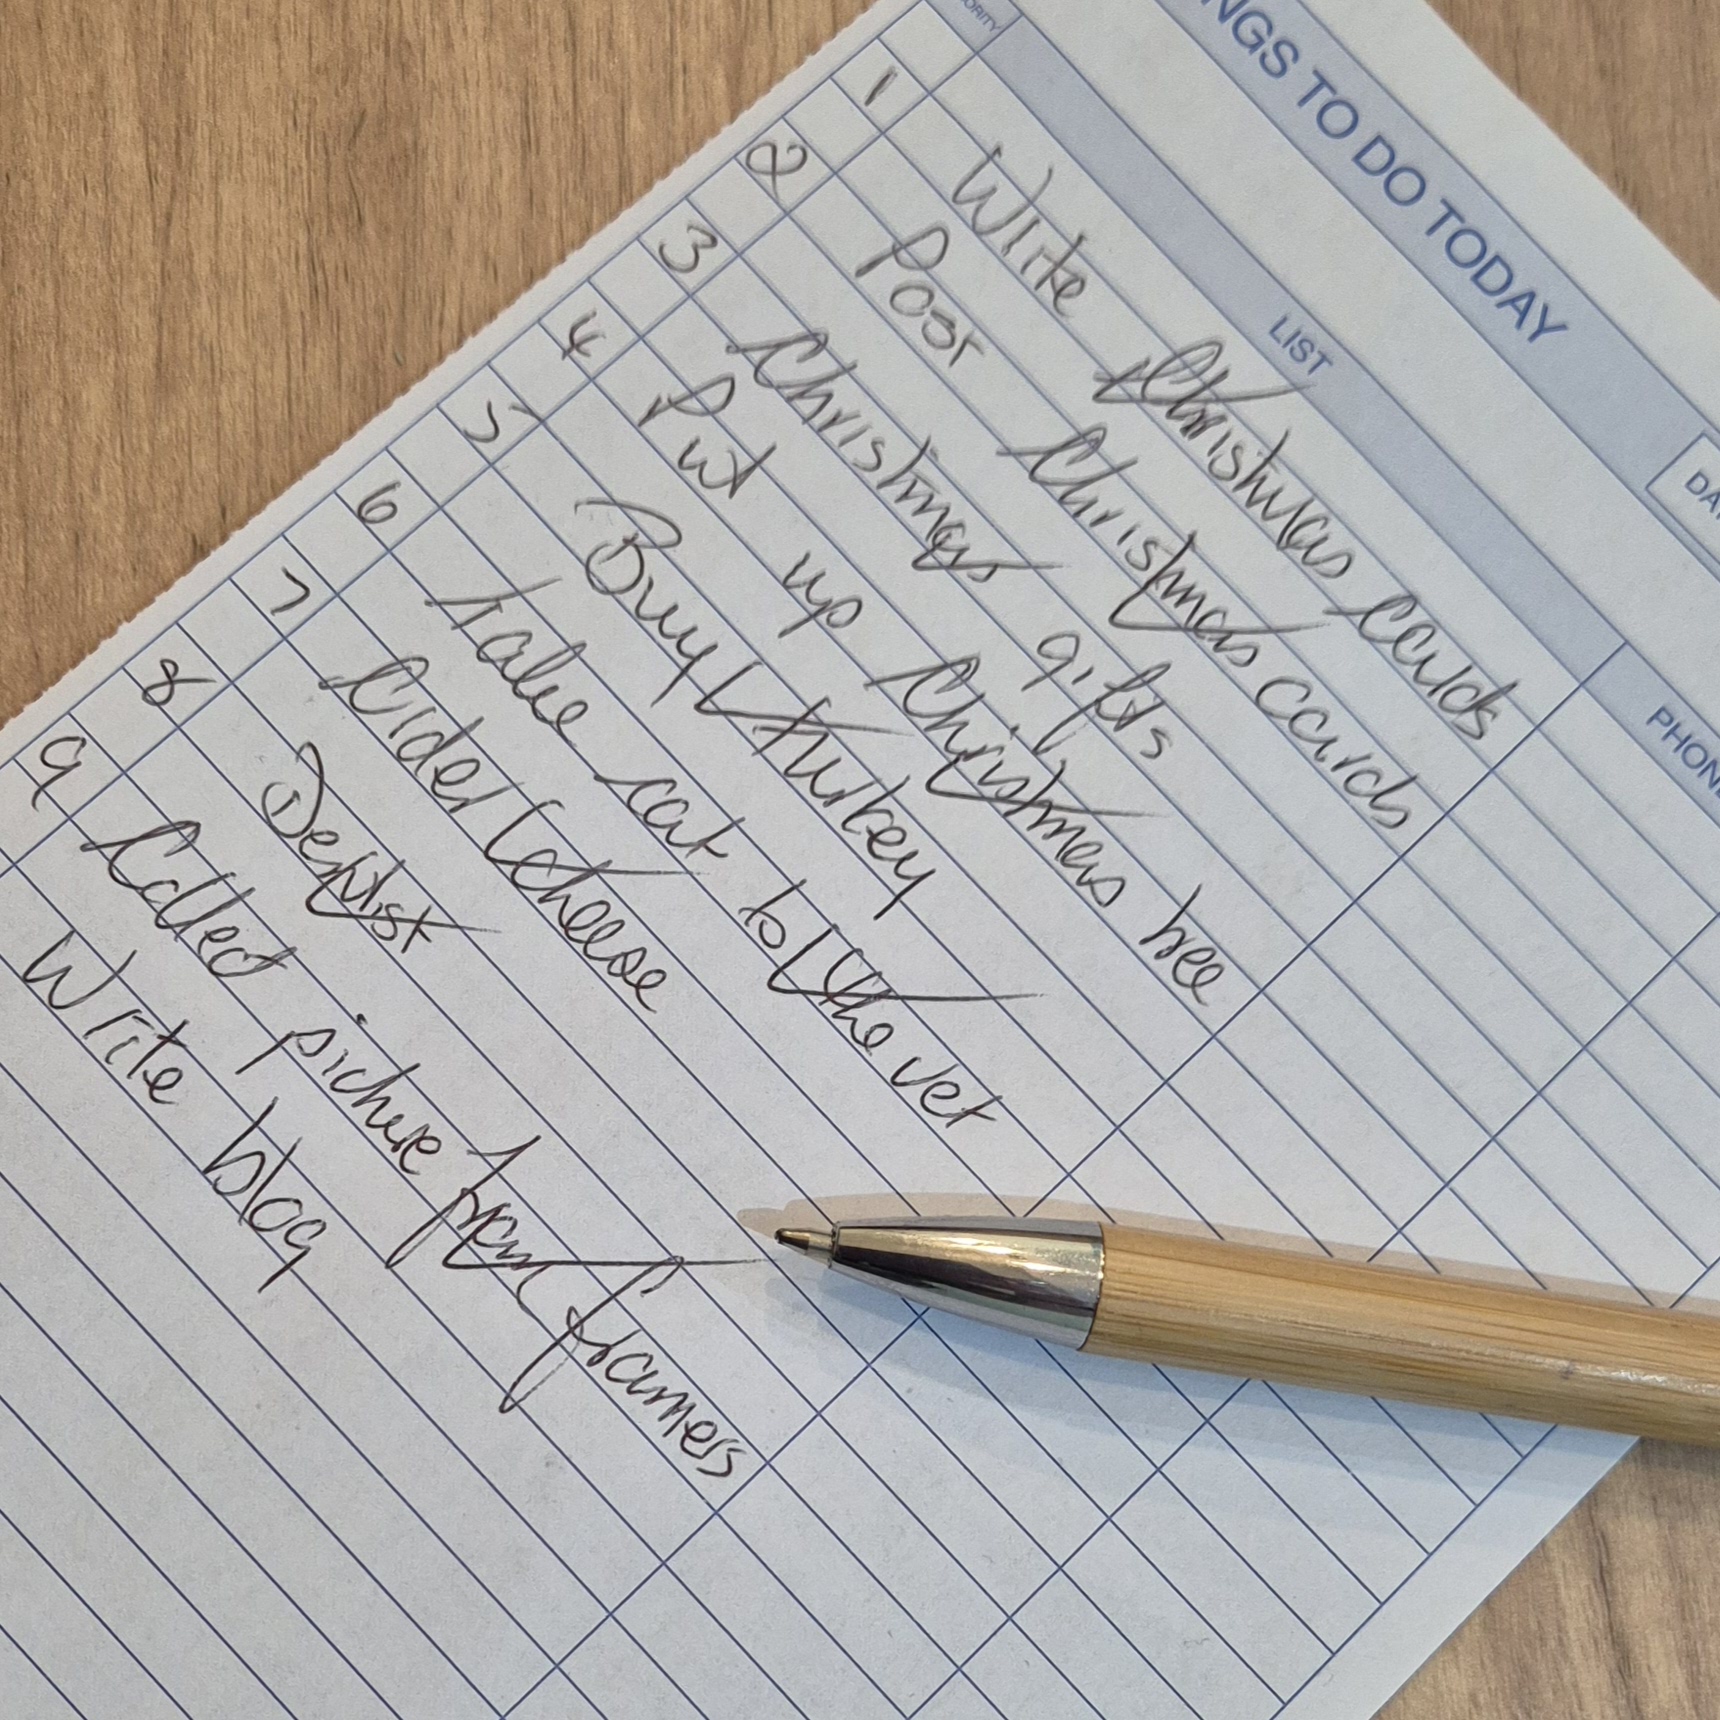 NGS TO DO TODAY
DA
ORITY LIST PHON
1 Write Christmas cards
2 Post Christmas cards
3 Christmas gifts
4 Put up Christmas tree
5 Buy turkey
6 Take cat to the vet
7 Order cheese
8 Dentist
9 Collect picture from framers
Write blog